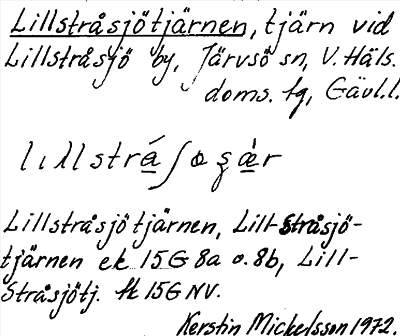 Lillstråsjötjärnen, tjärn vid
Lillstråsjö by, Järvsö sn, V. Häls.
doms. fg, Gävl.l.
Lillstråsjötjärnen, Lill-Stråsjö-
tjärnen ek 15G 8a o. 8b, Lill-
Stråsjötj. tk 15G NV.
Kerstin Mickelsson 1972.